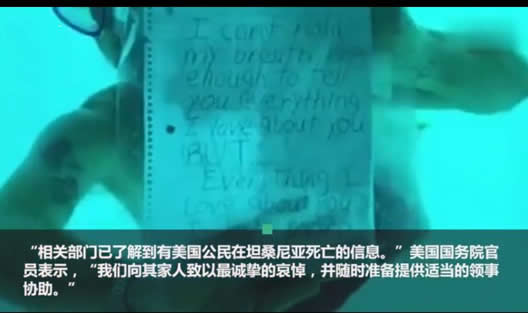 I can't hold
my breath
enough to tell
you Everything
I love about you
BUT
Everything I
Love about you
“相关部门已了解到有美国公民在坦桑尼亚死亡的信息。”美国国务院官
员表示，“我们向其家人致以最诚挚的哀悼，并随时准备提供适当的领事
协助。”